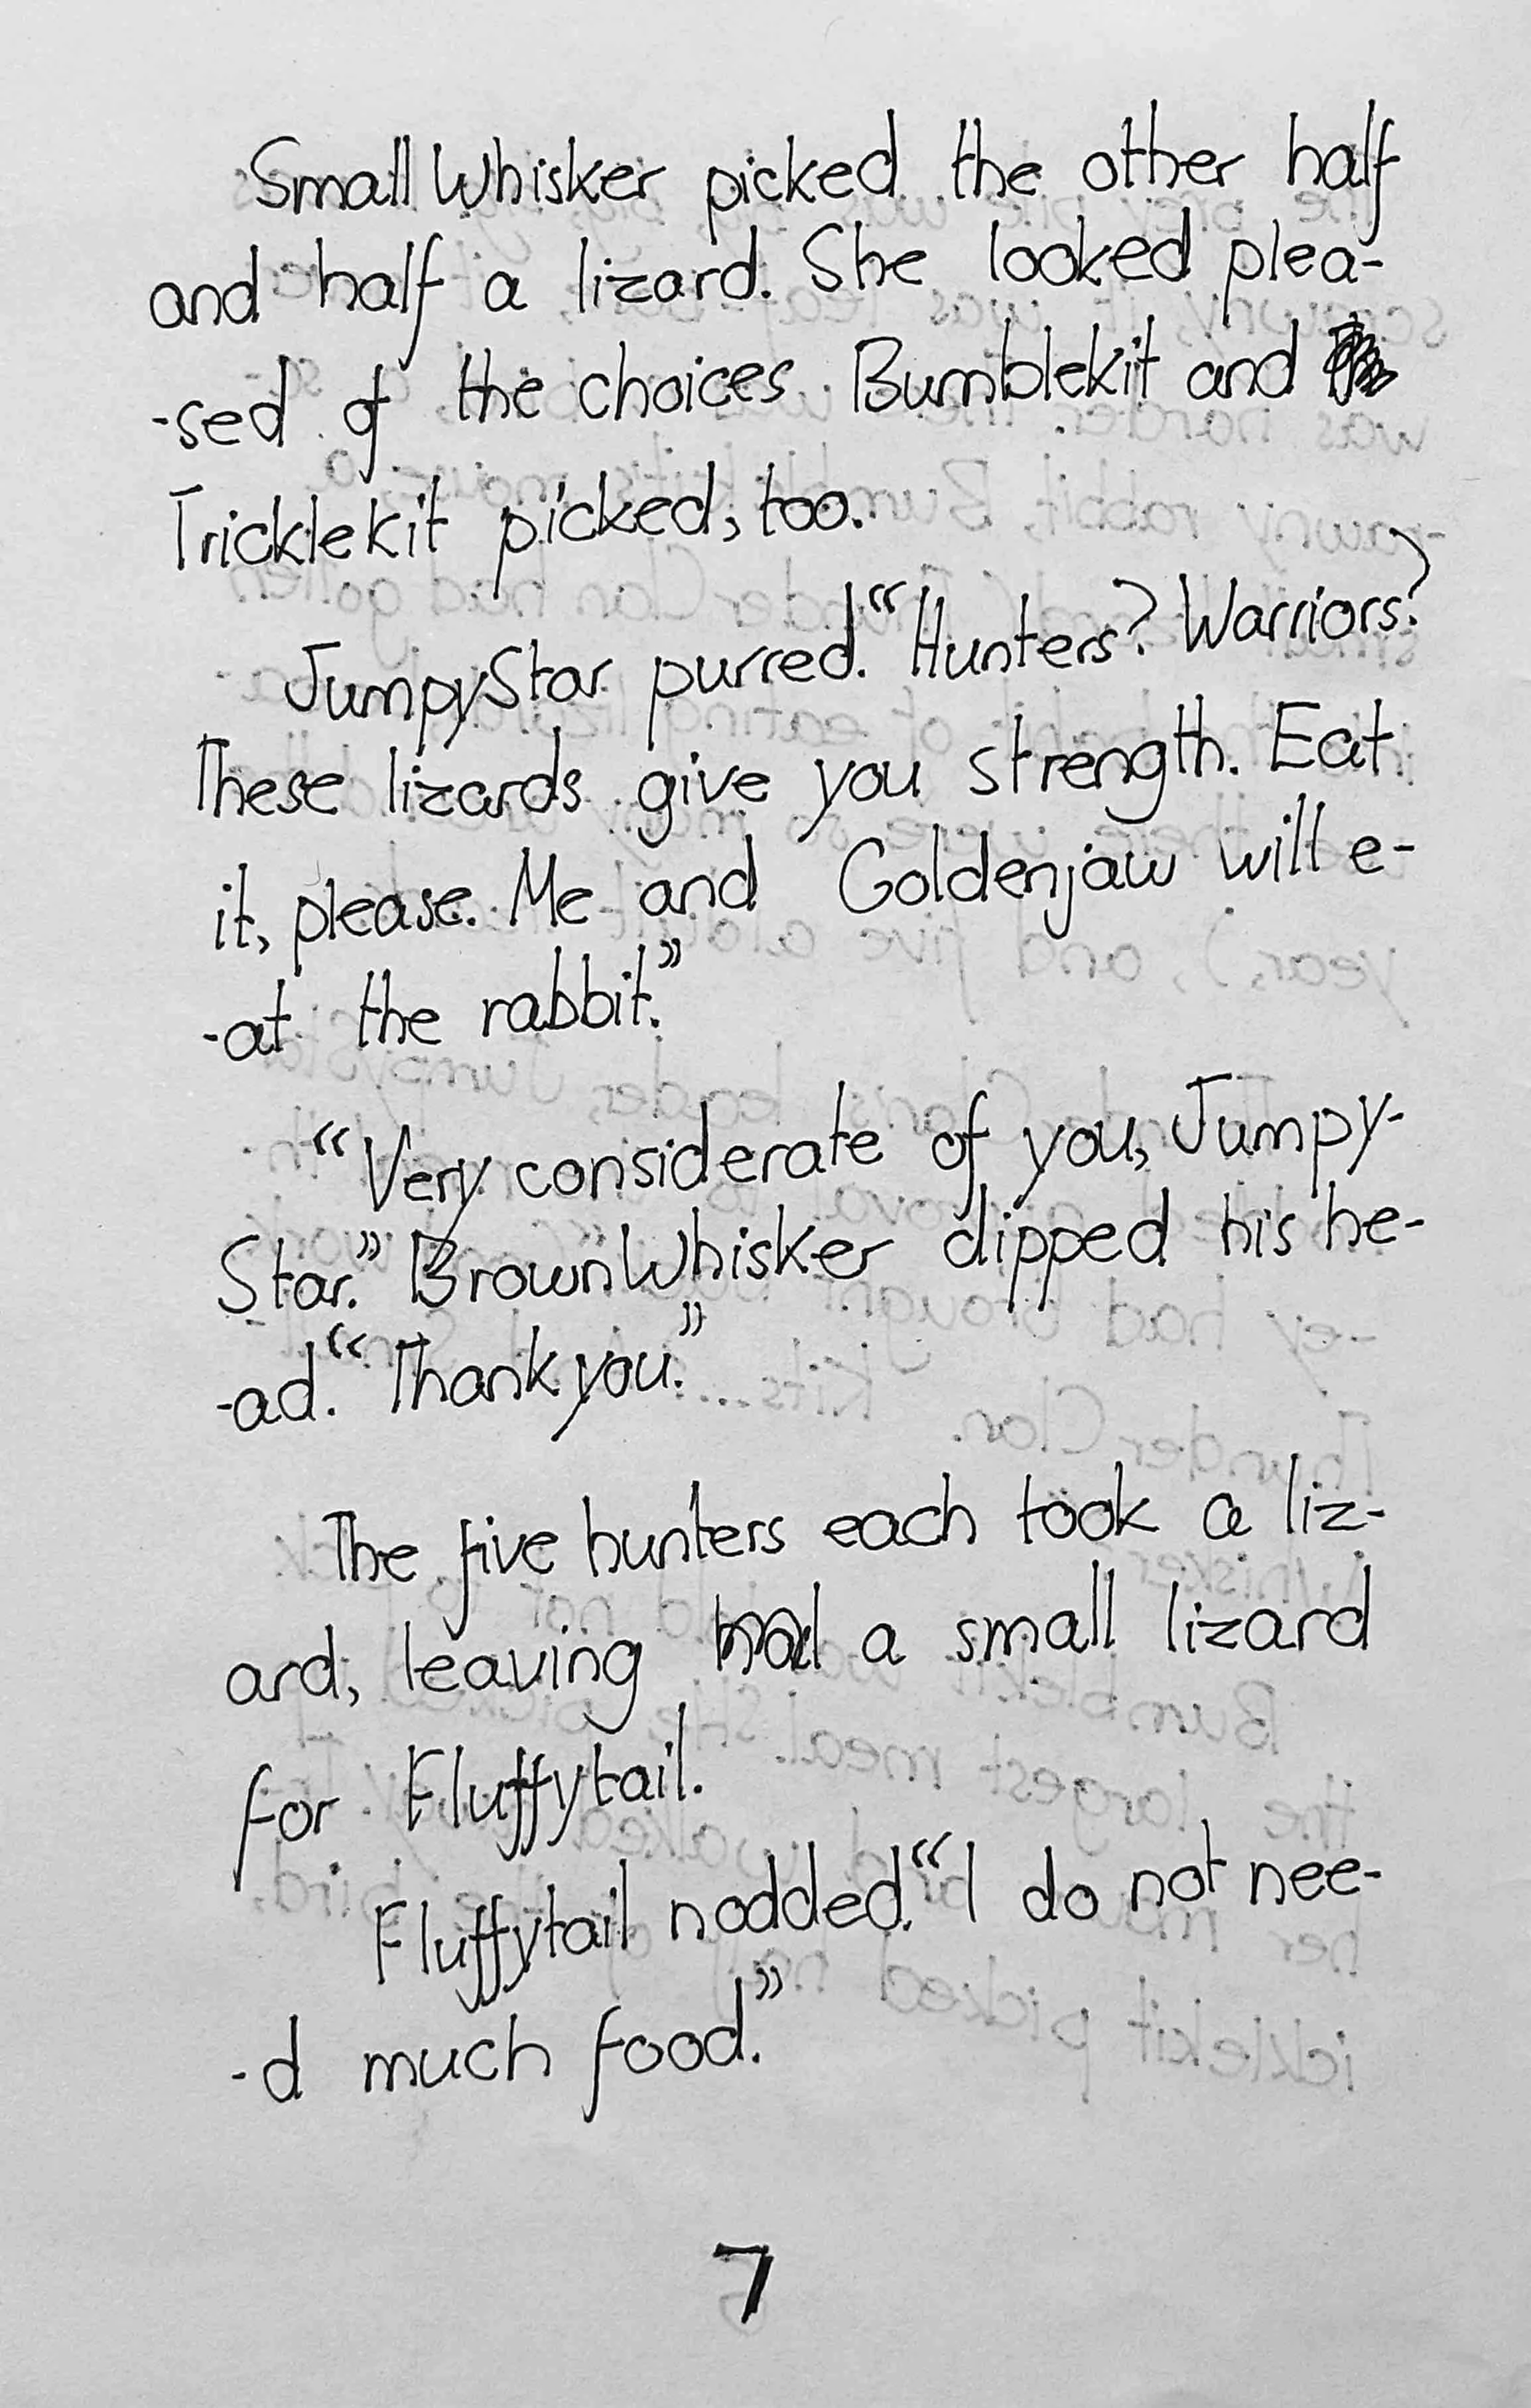 SmallWhisker picked the other half
and half a lizard. She looked plea-
-sed of the choices. Bumblekit and
Tricklekit picked, too.
JumpyStar purred. “Hunters? Warriors?
These lizards give you strength. Eat
it, please. Me and Goldenjaw will e-
-at the rabbit.”
“Very considerate of you, Jumpy-
Star.” BrownWhisker dipped his he-
-ad. “Thank you.”
The five hunters each took a liz-
ard, leaving a small lizard
for Fluffytail.
Fluffytail nodded. “I do not nee-
-d much food.”
7